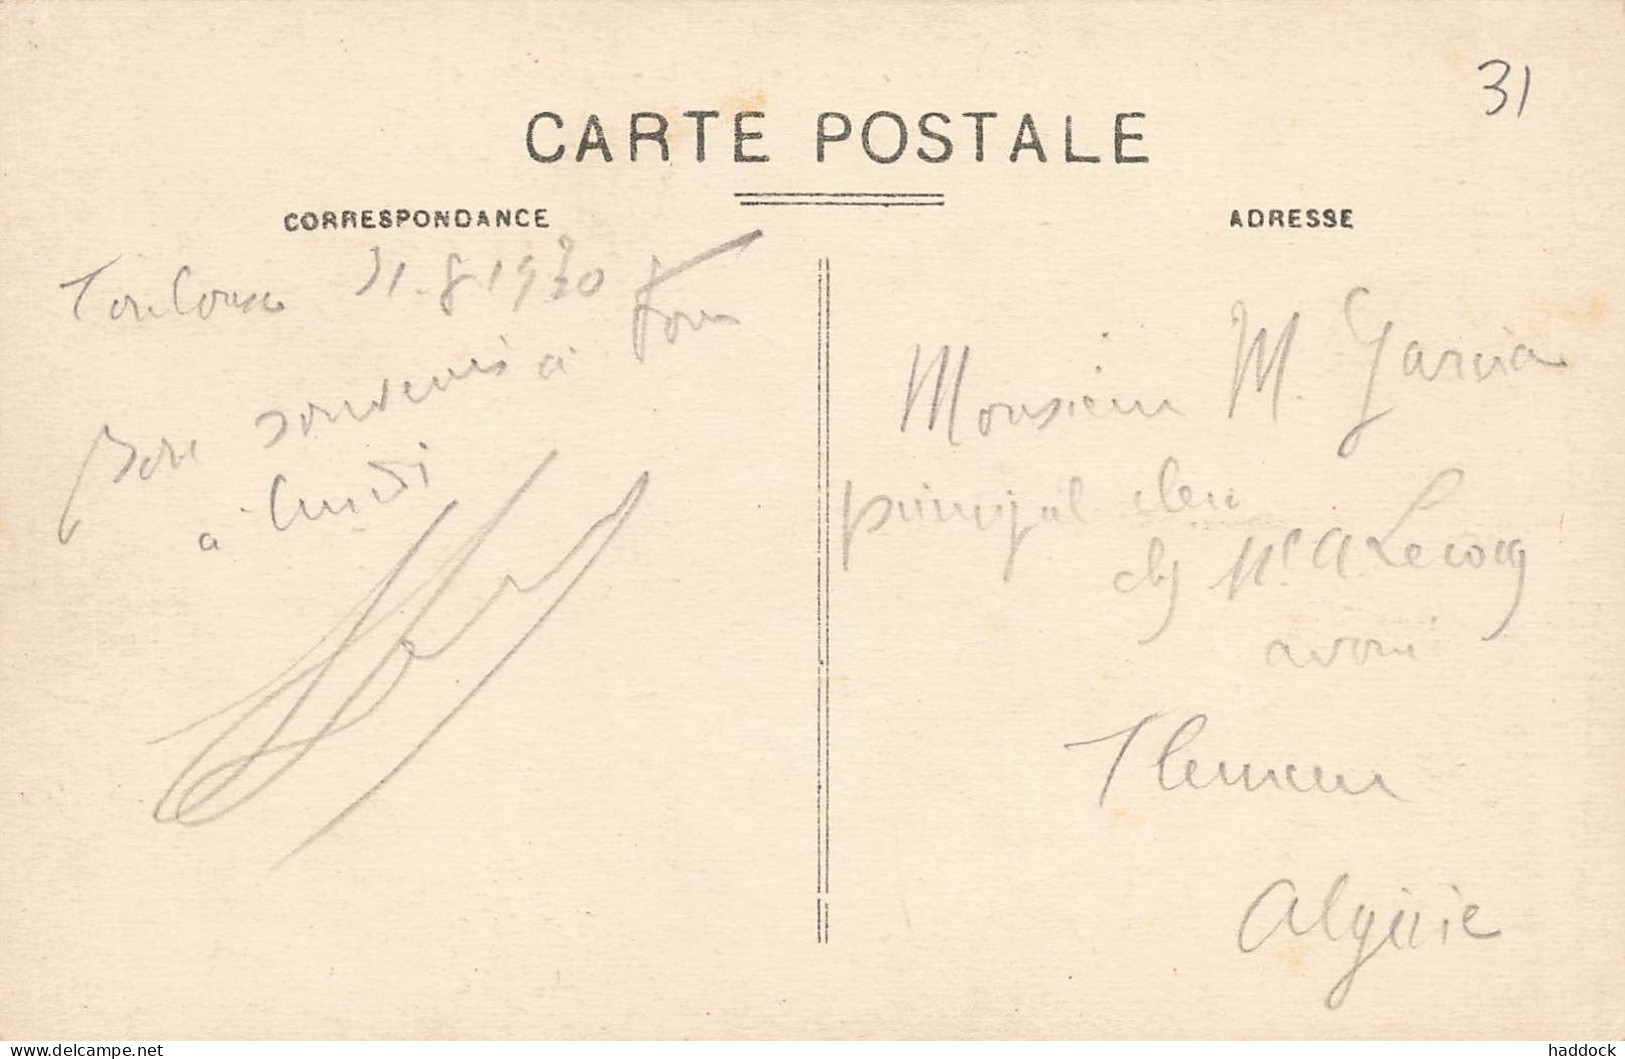 31
CARTE POSTALE
CORRESPONDANCE
ADRESSE
Toulouse 31.8.1930
Bons souvenirs à Tous
à lundi
Monsieur M. Garcia
principal clerc
chez Me A Lecocq
avoué
Tlemcen
Algérie
delcampe.net
haddock